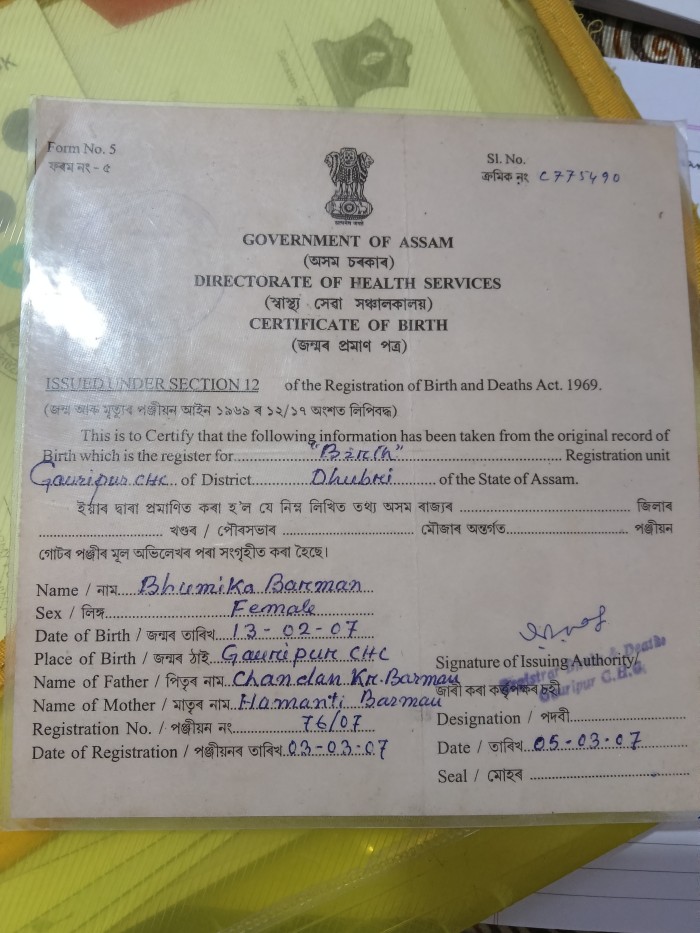 Form No. 5
ফৰম নং - ৫
Sl. No.
ক্ৰমিক নং C775490
GOVERNMENT OF ASSAM
(অসম চৰকাৰ)
DIRECTORATE OF HEALTH SERVICES
(স্বাস্থ্য সেৱা সঞ্চালকালয়)
CERTIFICATE OF BIRTH
(জন্মৰ প্ৰমাণ পত্ৰ)
ISSUED UNDER SECTION 12 of the Registration of Birth and Deaths Act. 1969.
(জন্ম আৰু মৃত্যুৰ পঞ্জীয়ন আইন ১৯৬৯ ৰ ১২/১৭ অংশত লিপিবদ্ধ)
This is to Certify that the following information has been taken from the original record of
Birth which is the register for "Birth" Registration unit
Gauripur CHC of District Dhubri of the State of Assam.
ইয়াৰ দ্বাৰা প্ৰমাণিত কৰা হ'ল যে নিম্ন লিখিত তথ্য অসম ৰাজ্যৰ জিলাৰ
খণ্ডৰ / পৌৰসভাৰ মৌজাৰ অন্তৰ্গত পঞ্জীয়ন
গোটৰ পঞ্জীৰ মূল অভিলেখৰ পৰা সংগৃহীত কৰা হৈছে।
Name / নাম Bhumika Barman
Sex / লিঙ্গ Female
Date of Birth / জন্মৰ তাৰিখ 13-02-07
Place of Birth / জন্মৰ ঠাই Gauripur CHC
Name of Father / পিতৃৰ নাম Chandan Kr. Barman
Name of Mother / মাতৃৰ নাম Hamanti Barman
Registration No. / পঞ্জীয়ন নং 76/07
Date of Registration / পঞ্জীয়নৰ তাৰিখ 03-03-07
Signature of Issuing Authority/
জাৰী কৰা কৰ্তৃপক্ষৰ চহী
Registrar Births & Deaths
Gauripur C.H.C.
Designation / পদবী
Date / তাৰিখ 05-03-07
Seal / মোহৰ